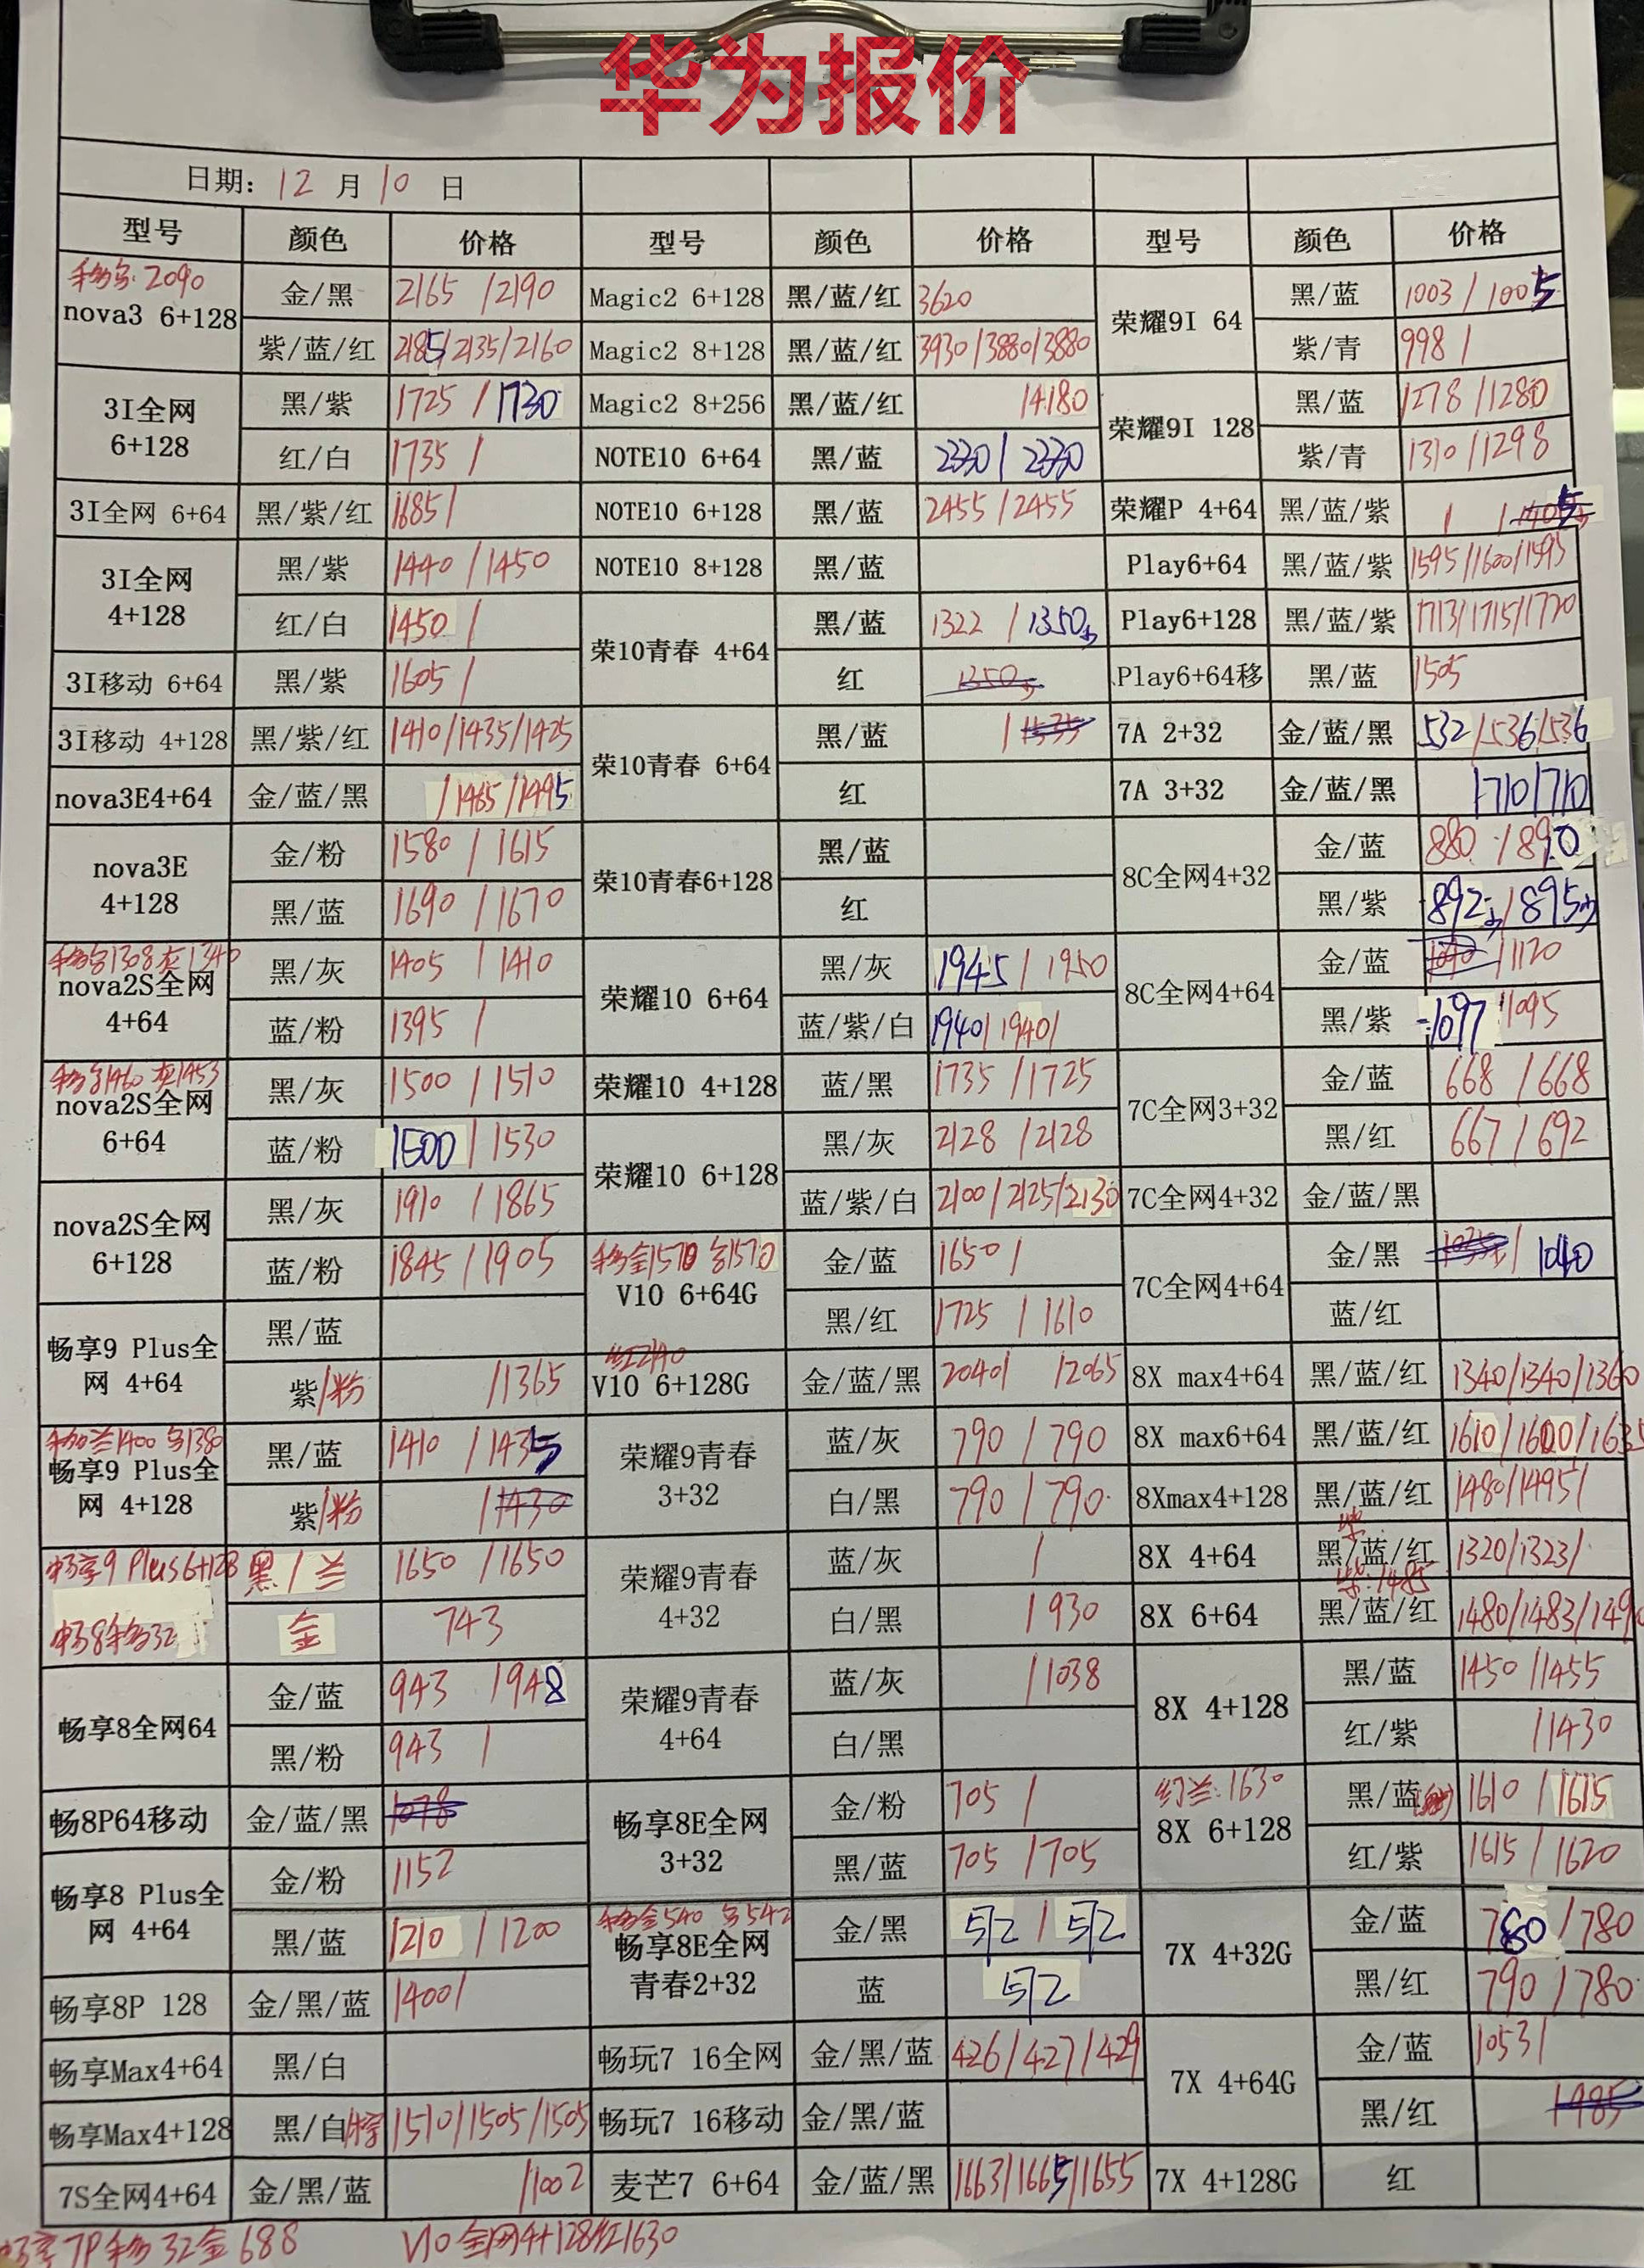 华为报价
日期: 12 月 10 日
型号 颜色 价格 型号 颜色 价格 型号 颜色 价格
nova3 6+128 金/黑 2165 /2190 Magic2 6+128 黑/蓝/红 3620 荣耀9I 64 黑/蓝 1003 / 1005
2090
紫/蓝/红 2185/2135/2160 Magic2 8+128 黑/蓝/红 3930/3880/3880 紫/青 998 /
3I全网 6+128 黑/紫 1725 / 1730 Magic2 8+256 黑/蓝/红 /4180 荣耀9I 128 黑/蓝 1278 /1280
红/白 1735 / NOTE10 6+64 黑/蓝 2330 / 2330 紫/青 1310 /1298
3I全网 6+64 黑/紫/红 1685/ NOTE10 6+128 黑/蓝 2455 /2455 荣耀P 4+64 黑/蓝/紫 / /
3I全网 4+128 黑/紫 1440 /1450 NOTE10 8+128 黑/蓝 Play6+64 黑/蓝/紫 1595/1600/1595
红/白 1450 / 荣10青春 4+64 黑/蓝 1322 / 1350 Play6+128 黑/蓝/紫 1713/1715/1720
3I移动 6+64 黑/紫 1605 / 红 1350 Play6+64移 黑/蓝 1505
3I移动 4+128 黑/紫/红 1410/1435/1425 荣10青春 6+64 黑/蓝 / 1535 7A 2+32 金/蓝/黑 532 /536/536
nova3E4+64 金/蓝/黑 /1465 /1495 红 7A 3+32 金/蓝/黑 /710/710
nova3E 4+128 金/粉 1580 / 1615 荣10青春6+128 黑/蓝 8C全网4+32 金/蓝 880 /890
黑/蓝 1690 / 1670 红 黑/紫 892 / 895
移动黑1308灰1340
nova2S全网 4+64 黑/灰 1405 / 1410 荣耀10 6+64 黑/灰 1945 / 1950 8C全网4+64 金/蓝 /1120
蓝/粉 1395 / 蓝/紫/白 1940/ 1940/ 黑/紫 1097 /1095
移动黑1460 灰1453
nova2S全网 6+64 黑/灰 1500 / 1510 荣耀10 4+128 蓝/黑 1735 /1725 7C全网3+32 金/蓝 668 / 668
蓝/粉 1500 / 1530 荣耀10 6+128 黑/灰 2128 /2128 黑/红 667 / 692
nova2S全网 6+128 黑/灰 1910 / 1865 蓝/紫/白 2100/2125/2130 7C全网4+32 金/蓝/黑
蓝/粉 1845 / 1905 V10 6+64G 金/蓝 1650 / 7C全网4+64 金/黑 / 1040
移动金1570 黑1570
畅享9 Plus全网 4+64 黑/蓝 黑/红 1725 / 1610 蓝/红
紫/粉 /1365 V10 6+128G 金/蓝/黑 2040/ /2065 8X max4+64 黑/蓝/红 1340/1340/1360
红2140
移动兰1400 黑1380
畅享9 Plus全网 4+128 黑/蓝 1410 / 1435 荣耀9青春 3+32 蓝/灰 790 / 790 8X max6+64 黑/蓝/红 1610/1600/1635
紫/粉 /1430 白/黑 790 / 790 8Xmax4+128 黑/蓝/红 1480/1495/
畅享9 Plus6+128 黑/兰 1650 /1650 荣耀9青春 4+32 蓝/灰 / 8X 4+64 黑/蓝/红 1320/1323/
紫
畅8移动32 金 743 白/黑 / 930 8X 6+64 黑/蓝/红 1480/1483/1490
紫:1485
畅享8全网64 金/蓝 943 /948 荣耀9青春 4+64 蓝/灰 /1038 8X 4+128 黑/蓝 1450 /1455
黑/粉 943 / 白/黑 红/紫 /1430
畅8P64移动 金/蓝/黑 1078 畅享8E全网 3+32 金/粉 705 / 8X 6+128 黑/蓝 1610 / 1615
幻兰:1630
畅享8 Plus全网 4+64 金/粉 1152 黑/蓝 705 / 705 红/紫 1615 / 1620
黑/蓝 1210 / 1200 畅享8E全网 青春2+32 金/黑 512 / 512 7X 4+32G 金/蓝 780 / 780
移动金540 黑542
畅享8P 128 金/黑/蓝 1400/ 蓝 512 黑/红 790 / 780
畅享Max4+64 黑/白 畅玩7 16全网 金/黑/蓝 426/427/429 7X 4+64G 金/蓝 1053/
畅享Max4+128 黑/白 1510/1505/1505 畅玩7 16移动 金/黑/蓝 黑/红 1985
7S全网4+64 金/黑/蓝 /1002 麦芒7 6+64 金/蓝/黑 1663/1665/1655 7X 4+128G 红
畅享7P移动32金688 V10全网4+128红1630